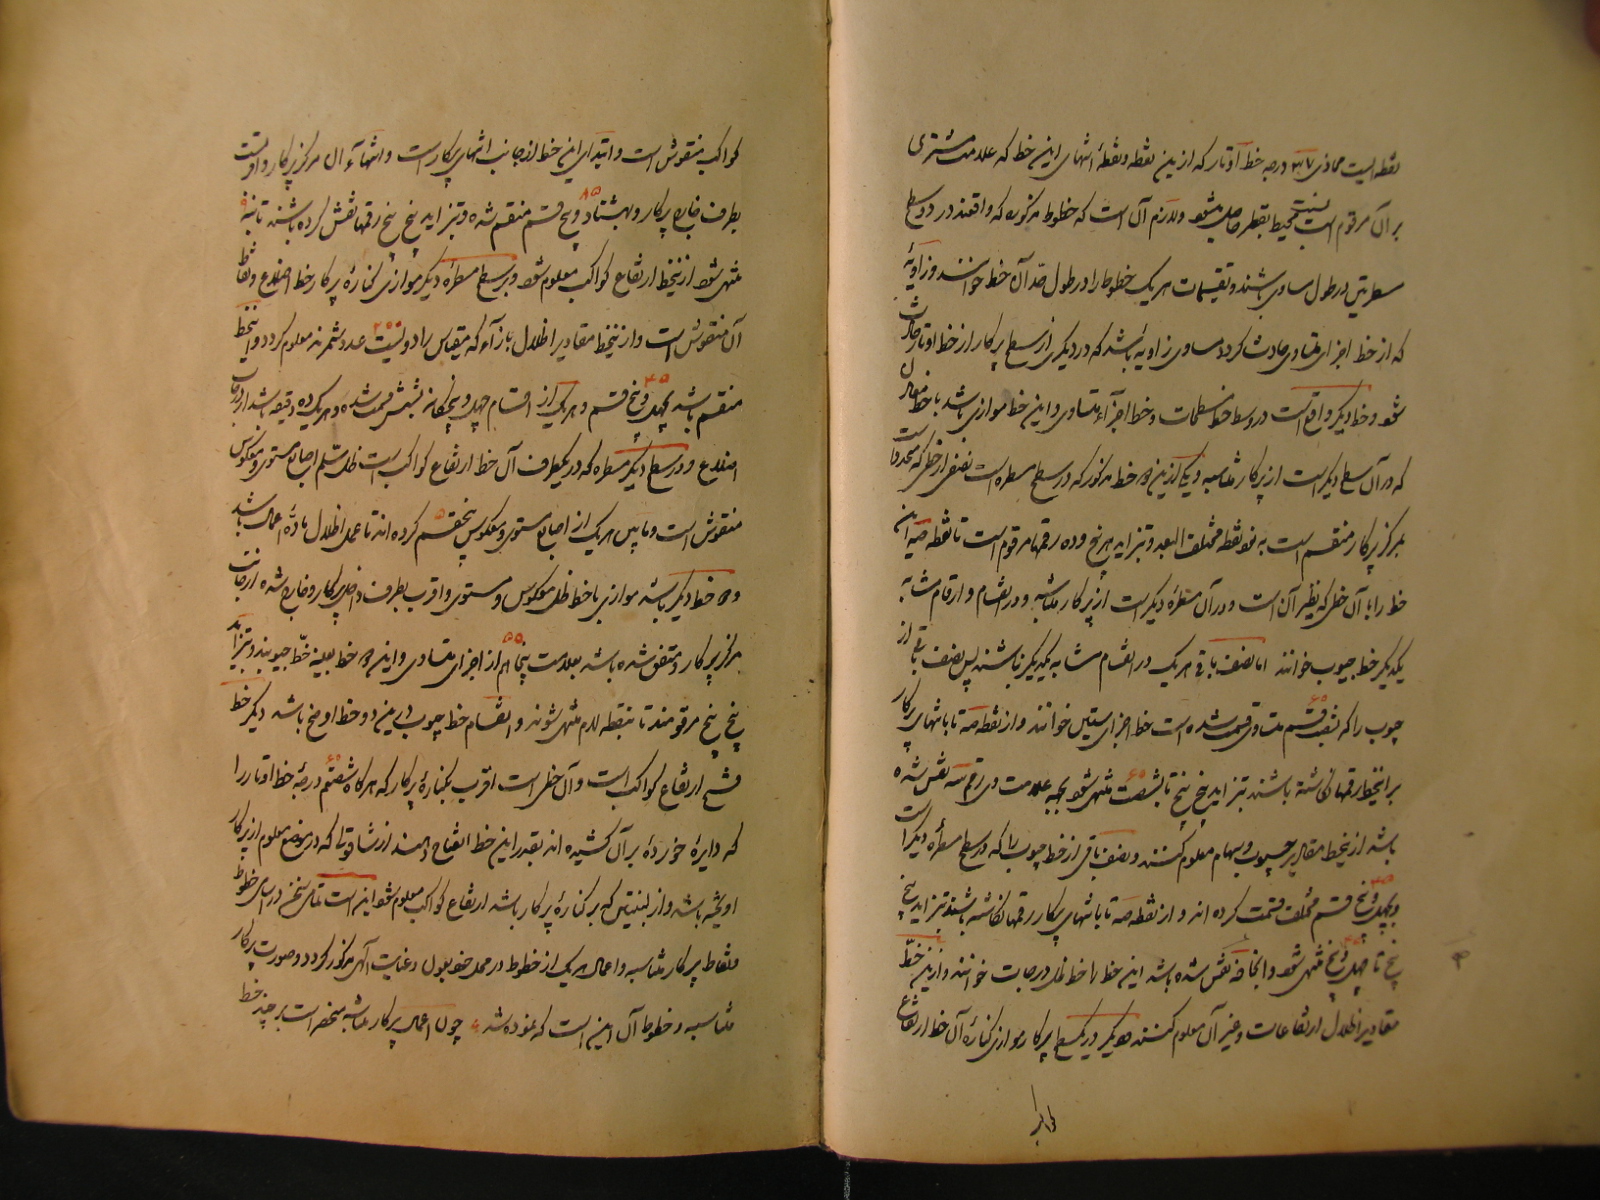 نقطه ایست محاذی ۳۷ درجه خط اوتار که از بین نقطه و نقطهٔ انتهای این خط که علامت مشتری
بر آن مرقوم است نسبت محیط بقطر حاصل میشود و لازم آن است که خطوط مذکوره که واقعند در دو سطح
مسطرتین در طول مساوی باشند و تقسیمات هر یک خطوط را در طول ضد آن خط خوانند و زاویهٔ
که از خط اجزای متساوی حادث گردد مساوی زاویه باشد که در دیگری از سطح پرکار از خط اوتار حادث
شود و خط دیگر واقع است در وسط خط منظمات و خط اجزاء متساوی و این خط موازی باشد با خط
که در آن سطح دیگر است از پرکار متناسبه و یکی ازین دو خط مذکور که در سطح مسطره است نصفی از خطی که
بمرکز پرکار منقسم است به نقطه مختلف البعد و بتزاید پنج و ده رقمها مرقوم است تا نقطه صه این
خط را با آن خطی که نظیر آن است و در آن مسطرهٔ دیگر است از پرکار متناسبه و در انقسام و ارقام مشابه
یکدیگر خط جیوب خوانند اما نصف باقی هر یک در انقسام مشابه یکدیگر نباشند پس نصف باقی از
جیوب را که بشصت قسم متساوی قسمت شده است خط اجزای ستین خوانند و از نقطه صه تا بانتهای پرکار
بر انخط رقمها نگاشته باشند بتزاید پنج پنج تا بشصت منتهی شود بجهه علامت دی رقم سه نقش شده
باشد از ینخط مقادیر جیوب و سهام معلوم کنند و نصف باقی از خط جیوب را که در سطح مسطرهٔ دیگر است
و بچهل و پنج قسم مختلف قسمت کرده اند و از نقطه صه تا بانتهای پرکار رقمها نگاشته باشند بتزاید پنج
پنج تا چهل و پنج منتهی شود و انجا ضه نقش شده باشد این خط را خط ظل درجات خوانند و ازین خط
مقادیر اظلال ارتفاعات و غیر آن معلوم کنند دیگر در یکسطح پرکار موازی کنارهٔ آن خط ارتفاع
کواکب
کواکب منقوش است و ابتدای این خط از جانب انتهای پرکار است و انتهاء ال مرکز پرکار و او نیست
بطرف خارج پرکار و بهشتاد و پنج قسم منقسم شده و بتزاید پنج پنج رقمها نقش کرده باشند تا بنه
منتهی شود از ینخط ارتفاع کواکب معلوم شود و بر سطح مسطرهٔ دیگر موازی کنارهٔ پرکار خط اضلاع و نقاط
آن منقوش است و از ینخط مقادیر اظلال بازآء که مقیاس را دویست عدد شمرند معلوم گردد و اینخط
منقسم باشد بچهل و پنج قسم و هر یک از اقسام چهل و پنجگانه بشش قسمت شده و هر یک ده دقیقه باشد از درجات
اضلاع و در سطح دیگر مسطره که در یکطرف آن خط ارتفاع کواکب است ظل سلم اصابع مستوی و معکوس
منقوش است و مابین هر یک از اصابع مستوی و معکوس پنجقسم کرده اند تا عمل اظلال باشد
و دو خط دیگر باشد موازی با خط ظل معکوس و مستوی و اقرب بطرف داخل پرکار و خارج شده از جانب
مرکز پرکار و متفق شده باشد بعلامت پنجاهم از اجزای متساوی و این دو خط بعینه خط جیوبند و بتزاید
پنج پنج مرقومند تا بنقطه لام منتهی شوند و انقسام خط جیوب درین دو خط اوضح باشد دیگر خط
فتح ارتفاع کواکب است و آن خطی است اقرب بکنارهٔ پرکار که هرگاه شصتم درجهٔ خط اوتار را
که دایرهٔ خورده بر آن کشیده اند بقدر این خط انفتاح دهند از شاقولی که در موضع معلوم از پرکار
اویخته باشد و از لبنتین که بر کنارهٔ پرکار باشد ارتفاع کواکب معلوم شود اینست تمامی سخن در اسامی خطوط
و نقاط پرکار متناسبه و اعمال هر یک از خطوط در محل خود بعون و عنایت الهی مذکور گردد و صورت پرکار
متناسبه و خطوط آن این است که نموده شد چون اعمال پرکار متناسبه منحصر است بر چند خط